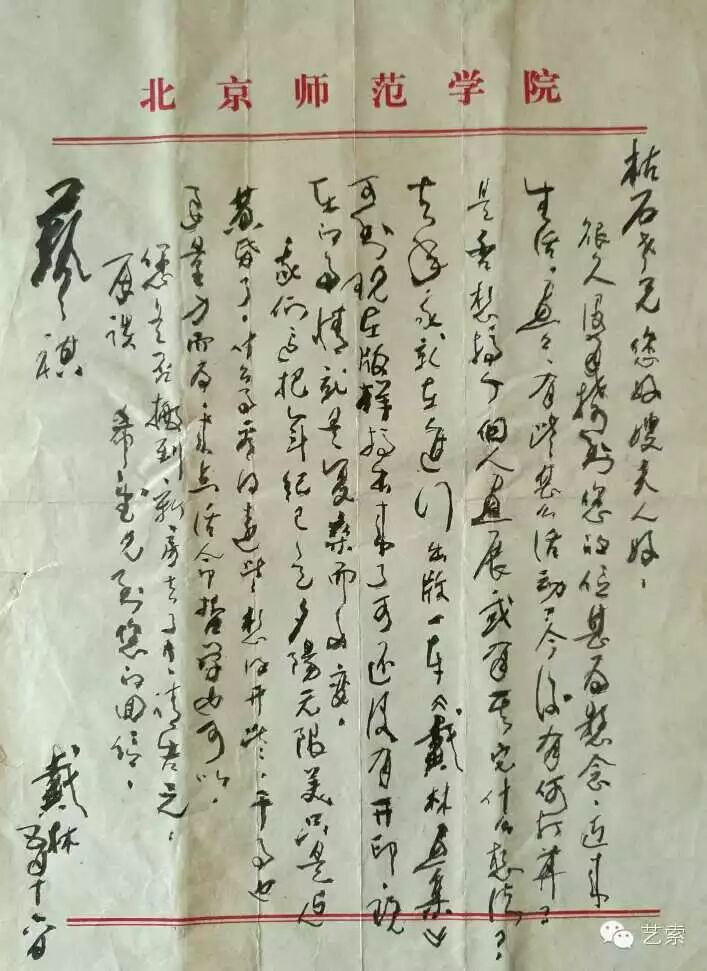 北京师范学院
枯石老兄您好嫂夫人好，
很久没有接到您的信甚为想念，近来
生活、画画、有些甚么活动？今后有何打算？
是否想搞个个人画展或有其它什么想法？
去年我就在进行出版一本《戴林画集》
可到现在版样搞出来了可还没有开印，现
在的事情就是复杂而多变，
我们这把年纪已是夕阳无限美只是近
黄昏了，什么事看的远些，想的开些，干事也
要量力而为来点活命哲学也可以，
您是否搬到新房去了，请告之，
再谈 希望见到您的回信，
艺祺
戴林
十六日
艺索